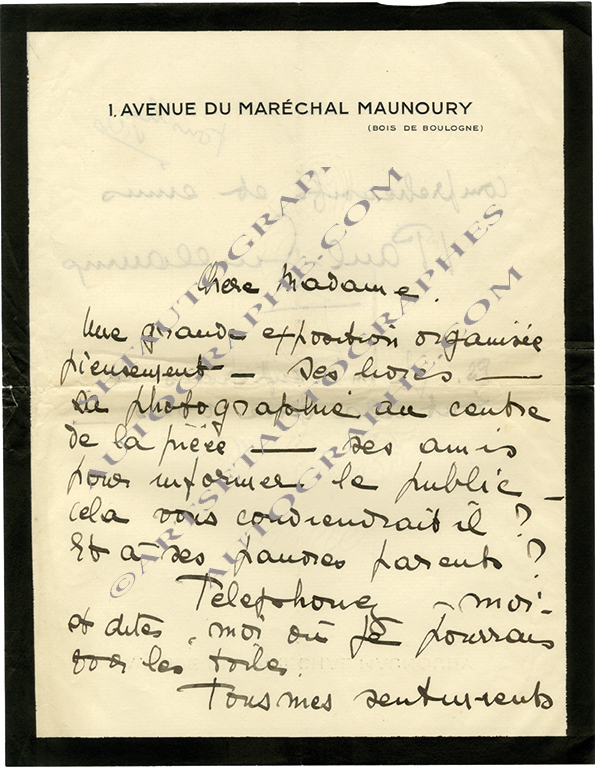 1, AVENUE DU MARÉCHAL MAUNOURY
(BOIS DE BOULOGNE)
Chère Madame.
Une grande exposition organisée
pieusement — Ses livres —
Sa photographie au centre
de la pièce — ses amis
pour informer le public —
cela vous conviendrait il ?
Et à ses pauvres parents ?
Telephonez - moi -
et dites - moi où je pourrais
voir les toiles.
Tous mes sentiments
compréhensifs et émus
Paul Guillaume
©ARTSETAUTOGRAPHES.COM
AUTOGRAPHES.COM